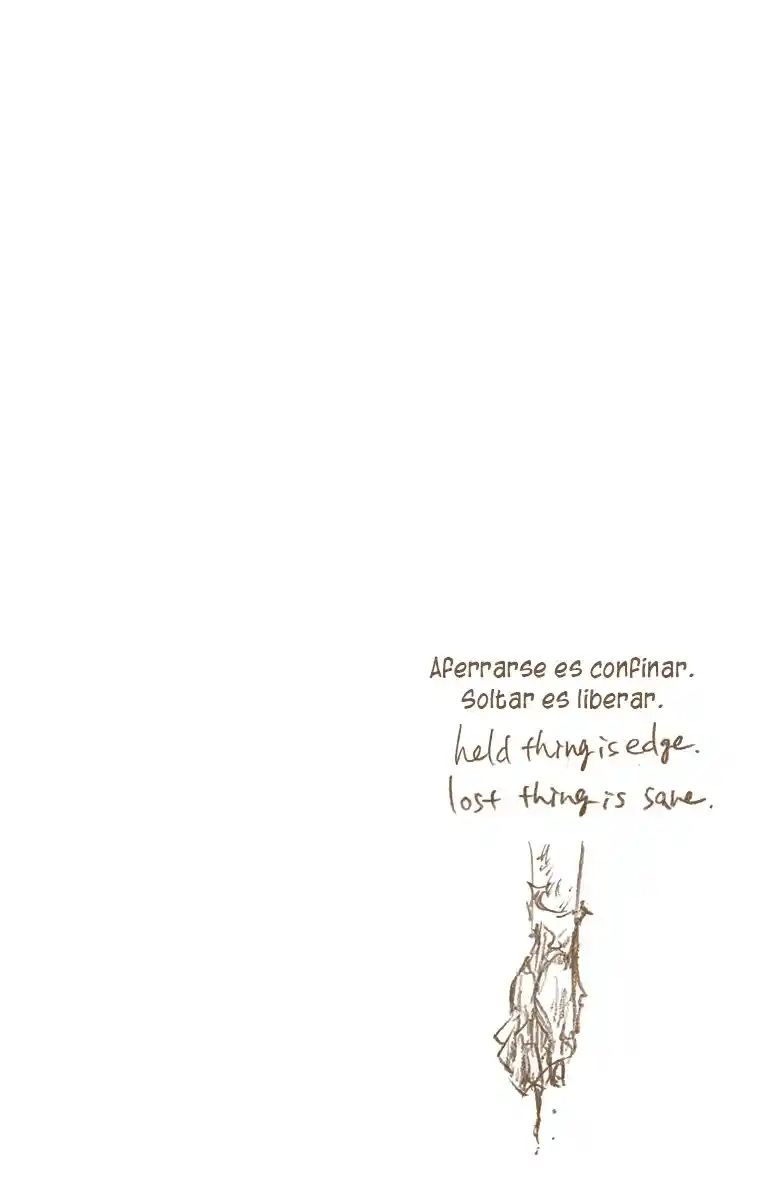 Aferrarse es confinar.
Soltar es liberar.
held thing is edge.
lost thing is save.